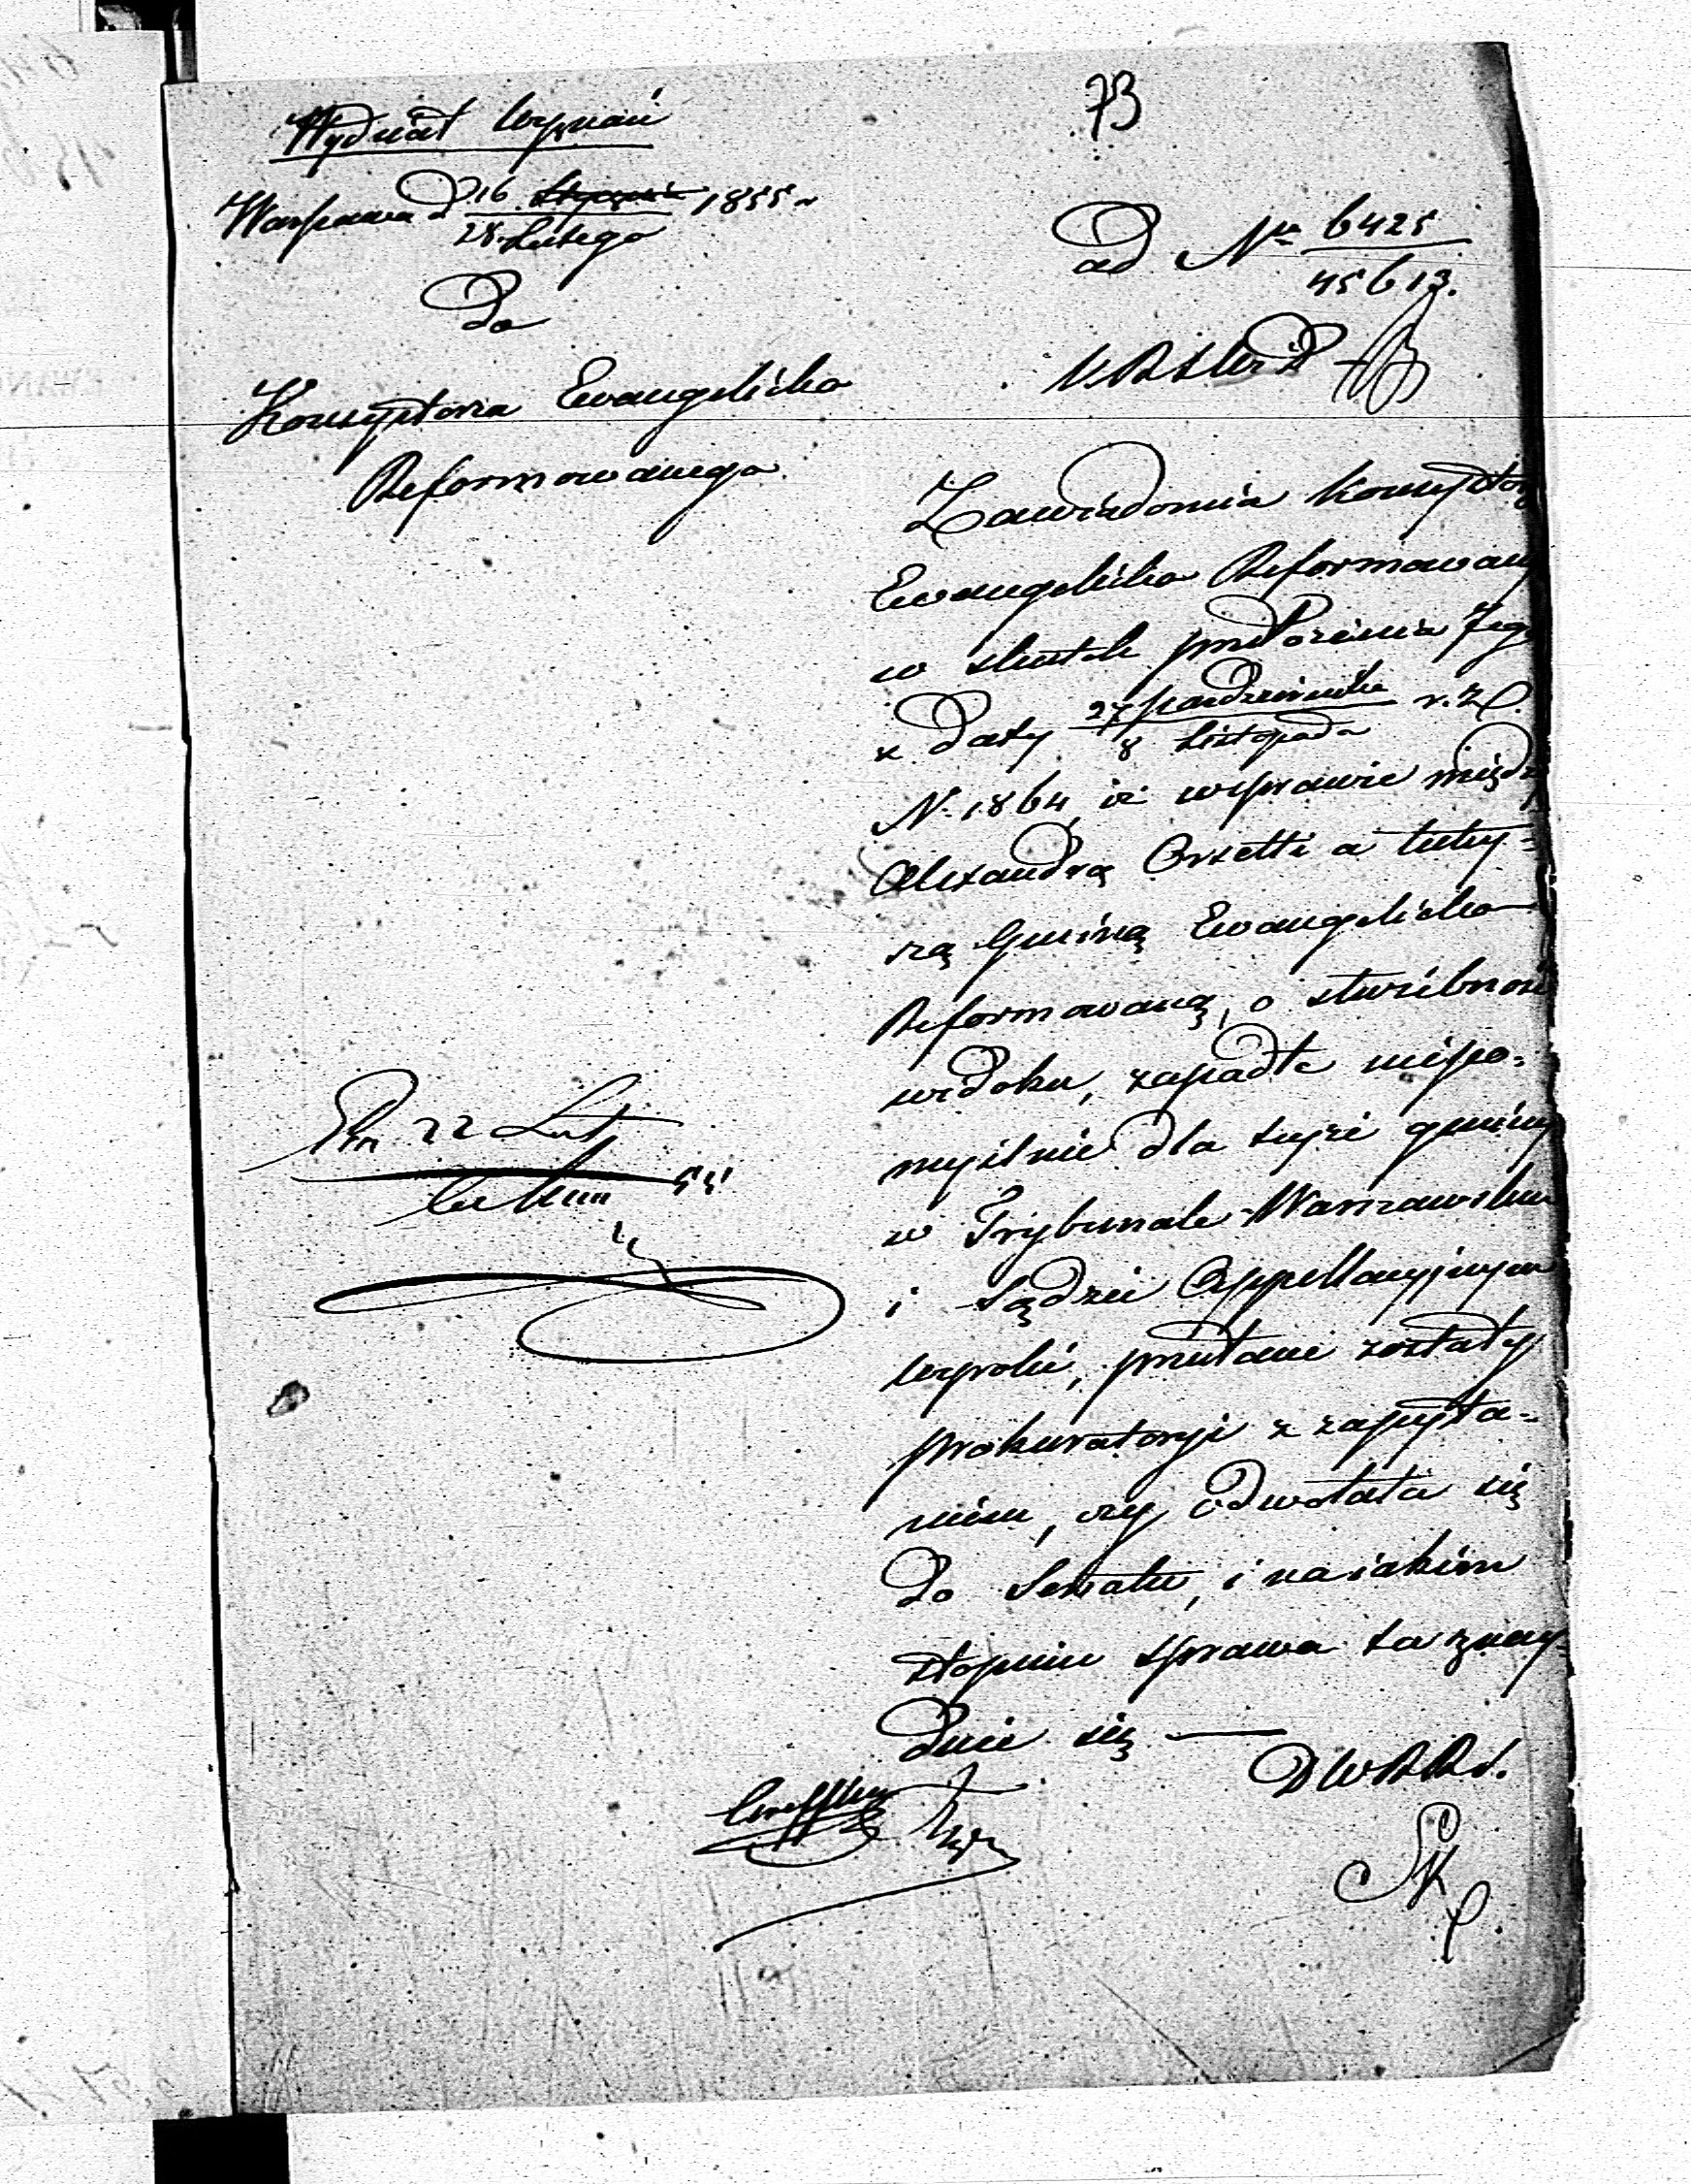 73
Wydział Wyznań
Warszawa d 16 Stycznia 1855 r
28 Lutego
Do
Konsystorza Ewangelicko
Reformowanego
ad Nr 6425
45613.
Zawiadomia Konsystorz
Ewangelicko Reformowany
w skutek przedłożenia Jego
z daty 27 października r. z.
8 Listopada
N. 1864, iż w sprawie między
Alexandrą Orsetti a tutey-
szą Gminą Ewangelicko
Reformowaną, o służebność
widoku, zapadłe niepo-
myślnie dla teyże gminy
w Trybunale Warszawskim
i Sądzie Appellacyjnym
wyroki, przesłane zostały
prokuratoryi z zapyta-
niem, czy odwołała się
do Senatu, i na iakim
stopniu sprawa ta znay-
duie się —
22 Lut
55